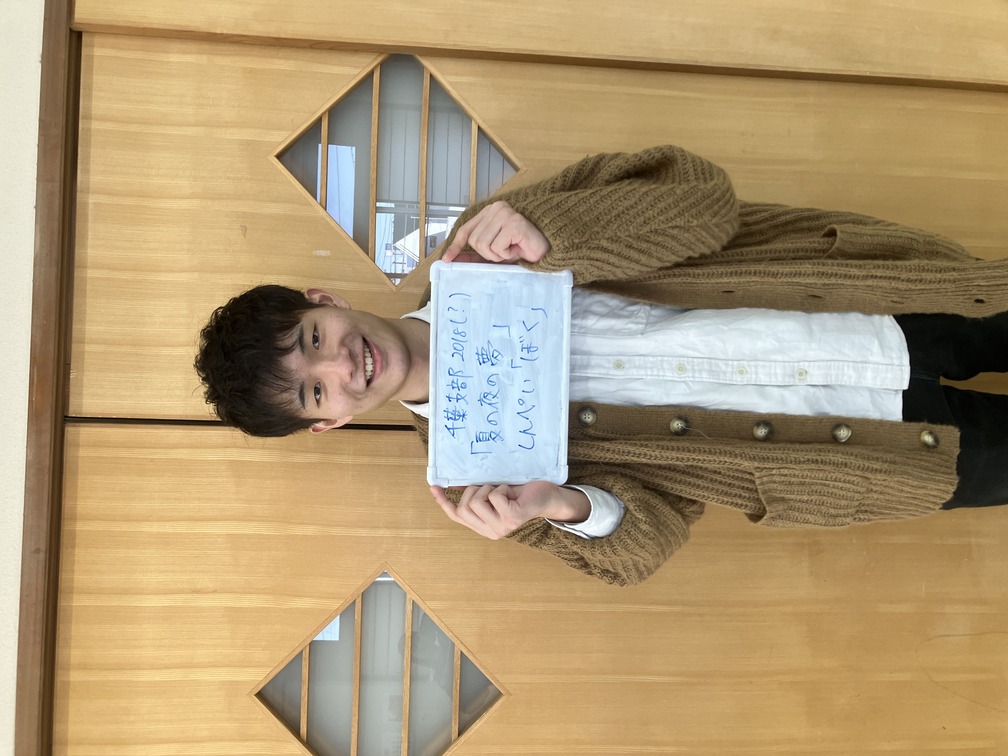 千葉支部 2018(?)
「夏の夜の夢」
しんぺい「ぼく」